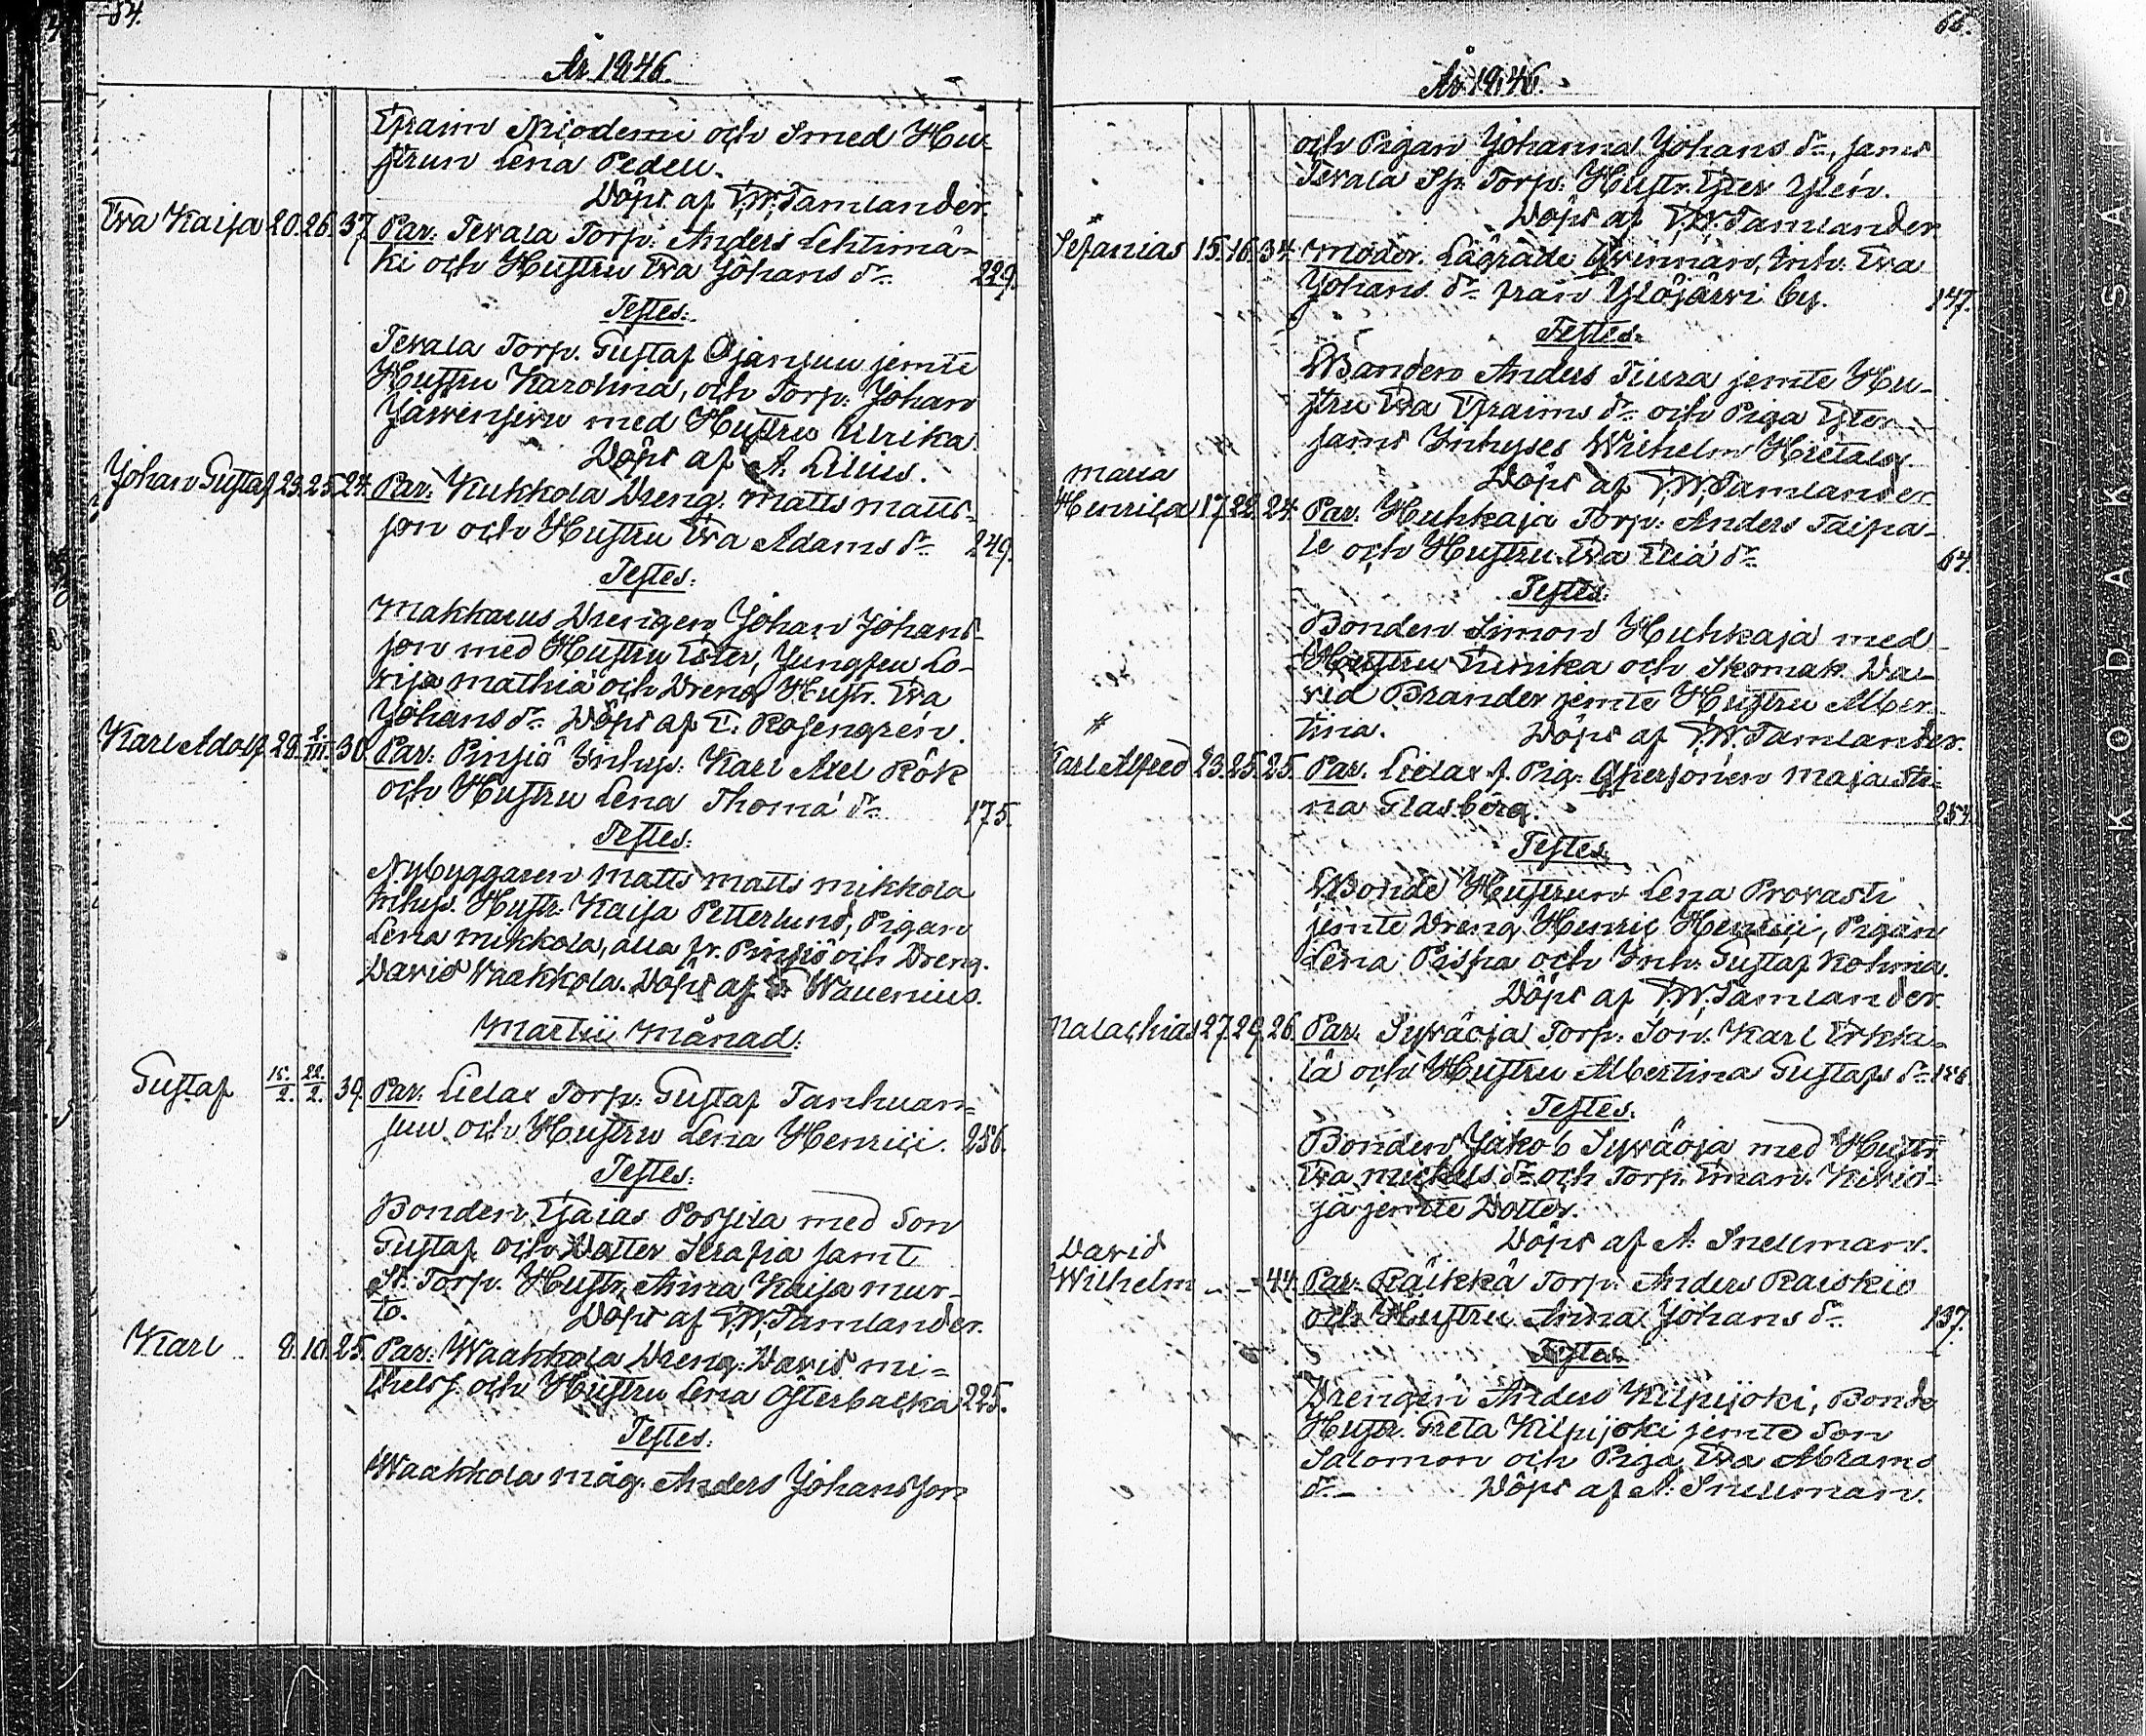 64.
År 1846.
Efraim Nicodemi och Smed Hu-
strun Lena Pedeli.
Döpt af F.W. Tamlander.
Eva Kaisa 20. 26. 37. Par: Tevala Torp: Anders Lehtimä-
ki och Hustru Eva Johans dr. 229.
Testes:
Tevala Torp. Gustaf Ojansuu jemte
Hustru Karolina, och Torp: Johan
Järvensivu med Hustru Ulrika.
Döpt af A. Lilius.
Johan Gustaf 23. 25. 24. Par: Kukkola Dreng: Matts Matts-
son och Hustru Eva Adams dr. 249.
Testes:
Makkarus Drengen Johan Johans-
son med Hustru Ester, Jungfru Lo-
visa Mathiä och Dreng Hustr. Eva
Johans dr. Döpt af E. Rosengrén.
Karl Adolf 28. 1/III. 30. Par: Pinsiö Inhys: Karl Axel Rök
och Hustru Lena Thomä dr. 175.
Testes:
Nybyggaren Matts Matts Mikkola
Inhys. Hustr: Kaisa Petterlund, Pigan
Lena Mikkola, alla fr. Pinsiö och Dreng.
David Waakkola. Döpt af F Wallenius.
Martii Månad.
Gustaf 15./2. 22./2. 39. Par: Lielax Torp: Gustaf Tanhuan-
suu och Hustru Lena Henrici. 256.
Testes:
Bonden Esaias Pospila med Son
Gustaf och Dotter Serafia samt
St: Torp. Hustr. Anna Kaisa Mur-
to. Döpt af F.W. Tamlander.
Karl 8. 10. 25. Par: Waakkola Dreng: David Mi-
chelss. och Hustru Lena Österbacka 225.
Testes:
Waakkola måg. Anders Johansson
65.
År 1846.
och Pigan Johanna Johans dr, samt
Tevala Torp: Hustr. Ester Ylén.
Döpt af F.W. Tamlander
Sefanias 15. 16. 34. Moder. Lägrade Qvinnan, Inh: Eva
Johans dr från Ylöjärvi by. 147.
Testes:
Bonden Anders Tiura jemte Hu-
stru Eva Efraims dr och Piga Ester
samt Inhyses Wilhelm Hietala.
Döpt af F.W. Tamlander
Maria
Henrica 17. 22. 24. Par: Huhkaja Torp: Anders Taipa-
le och Hustru Eva Eliä dr. 64.
Testes:
Bonden Simon Huhkaja med
Hustru Eunika och Skomak. Da-
vid Brander jemte Hustru Alber-
tina. Döpt af F.W. Tamlander.
Karl Alfred 23. 25. 25. Par. Lielax f. Pig: Qspersonen Maja Sti-
na Glasberg. 254.
Testes:
Bonde Hustrun Lena Provasti
jemte Dreng Henric Henrici, Pigan
Lena Pispa och Inh: Gustaf Kohina.
Döpt af F.W. Tamlander.
Malachias 27. 29. 26. Par: Syväoja Torp: Son. Karl Erkki-
lä och Hustru Albertina Gustafs dr
Testes:
Bonden Jakob Syväoja med Hustr
Eva Mickels dr och Torp. Eman. Kivio-
ja jemte Dotter.
Döpt af A. Snellman.
David
Wilhelm - - 44. Par: Räikkä Torp: Anders Raiskio
och Hustru Anna Johans dr. 137.
Testes.
Drengen Anders Kilpijoki, Bonde
Hustr. Greta Kilpijoki jemte Son
Salomon och Piga Eva Abrams
dr. Döpt af A. Snellman.
KODAK SAFE